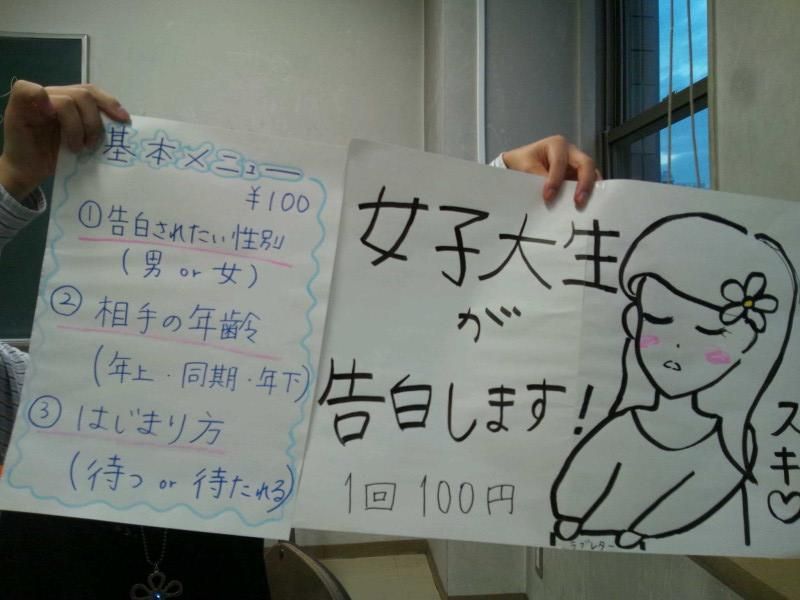 基本メニュー
¥100
①告白されたい性別
(男 or 女)
②相手の年齢
(年上・同期・年下)
③はじまり方
(待つ or 待たれる)
女子大生
が
告白します!
1回 100円
スキ♡
ラブレター